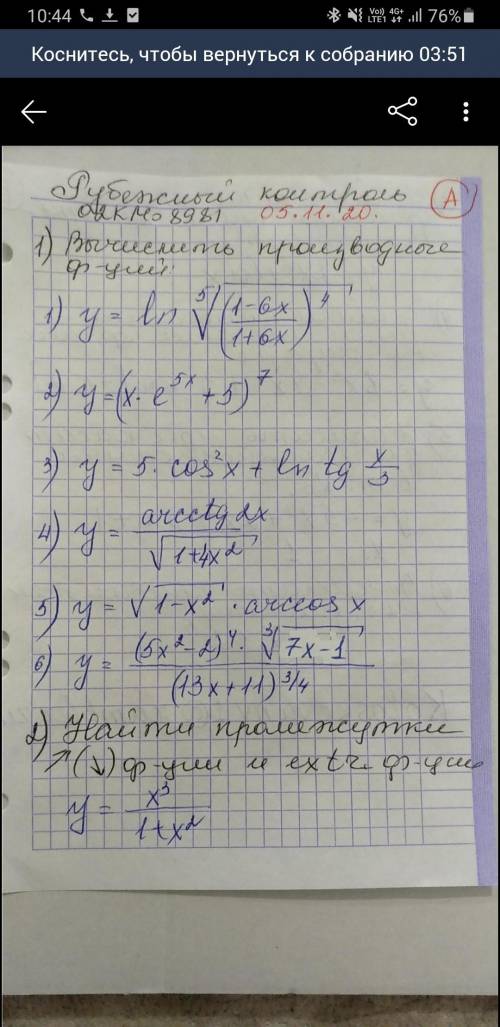 10:44
Vo)) 4G+
LTE1 76%
Коснитесь, чтобы вернуться к собранию 03:51
Рубежный контроль
А
05.11.20.
1) Вычислить производные
ф-ций:
1) y = ln ⁵√((1-6x)/(1+6x))⁴
2) y=(x·e^5x +5)^7
3) y = 5·cos²x + ln tg x/3
4) y = arcctg 2x / √(1+4x²)
5) y = √(1-x²) · arccos x
6) y = (5x²-2)⁴ · ³√(7x-1) / (13x+11)^3/4
2) Найти промежутки
↗(↘) ф-ции и extr. ф-ции
y = x³/(1+x²)